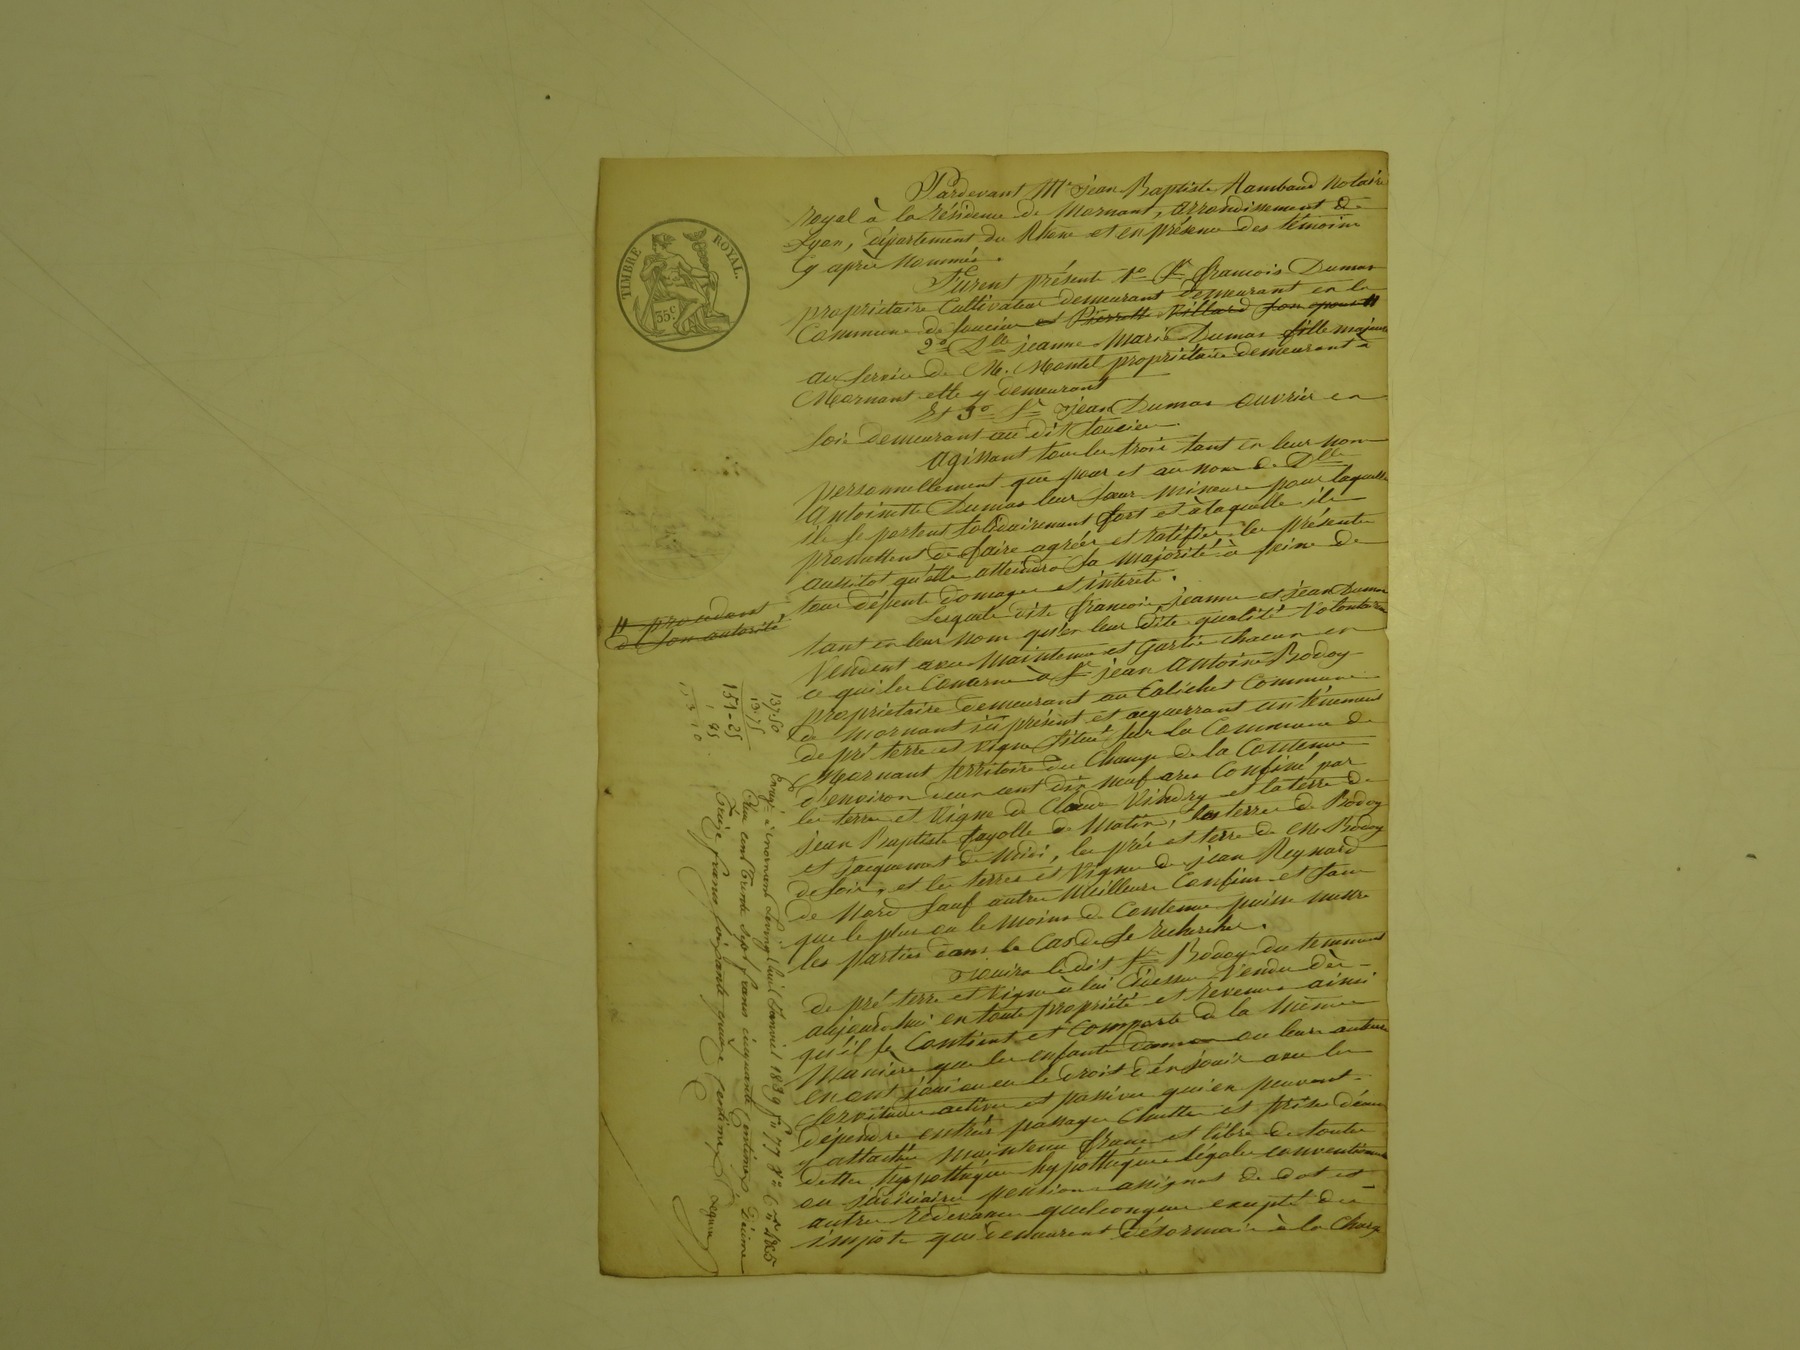 Pardevant Me Jean Baptiste Rambaud Notaire
royal à la résidence de Mornant, arrondissement de
Lyon, département du Rhône et en présence des témoins
Cy après Nommés.
TIMBRE ROYAL.
35 c.
Furent présent 1o Sr françois Dumas
propriétaire Cultivateur demeurant demeurant en la
Commune de Soucieu et Pierrette Villard son epouse #
2o Dlle jeanne Marie Dumas fille majeure
au service de M. Montel propriétaire demeurant à
Mornant elle y demeurant
Et 3o Sr jean Dumas ouvrier en
soie demeurant au dit Soucieu.
agissant tous les trois tant en leur nom
personnellement que pour et au nom de Dlle
Antoinette Dumas leur soeur mineure pour laquelle
ils se portent solidairement fort et à laquelle ils
promettent de faire agréer et ratifier les présentes
aussitot qu'elle atteindra sa majorité à peine de
tous dépents domages et intérets.
# procedant
de son autorité
Lesquels dits françois, jeanne et jean Dumas
tant en leur nom qu'en leur dite qualité Volontairement
Vendent avec Maintenue et Garantie chacun en
ce qui les Concerne à Sr jean Antoine Bodoy
propriétaire demeurant au Commune
de Mornant ici présent et acquerrant un ténement
de pré terre et vigne situé sur la Commune de
Mornant territoire du Champ de la Contenue
d'environ deux cent dix neuf ares Confiné par
les terres et Vigne de Claude Vindry et la terre de
jean Baptiste fayolle de Matin, les terres de Bodoy
et Jacquemet de Midi, les prés et terre de Me Bodoy
de soir, et les terres et Vigne de jean Reynard
de Nord sauf autres Meilleurs Confins et sans
que le plus ou le moins de Contenue puisse mettre
les parties dans le Cas de se rechercher.
Jouira le dit Sr Bodoy du tenement
de pré terre et vigne à lui Cidessus Vendu dès
aujourd'hui en toute propriété et revenus ainsi
qu'il se Contient et Comporte de la Même
Manière que les enfants Dumas ou leurs auteurs
en ont joui ou eu le droit d'en jouir avec les
servitudes actives et passives qui en peuvent
dépendre entrées passages Chuttes et prises d'eau
y attachés Maintenu franc et libre de toutes
dettes hypothèques légales conventionnelles
ou judiciaires pensions assignat de dot et
autres redevances quelconques exepté des
impots qui demeurent désormais à la Charge
137 50
13 75
151-25
Enregé à Mornant le vingt huit Janvier 1839 fo 77
Reçu cent trente sept francs cinquante centimes Décime
Treize francs soixante quinze centimes